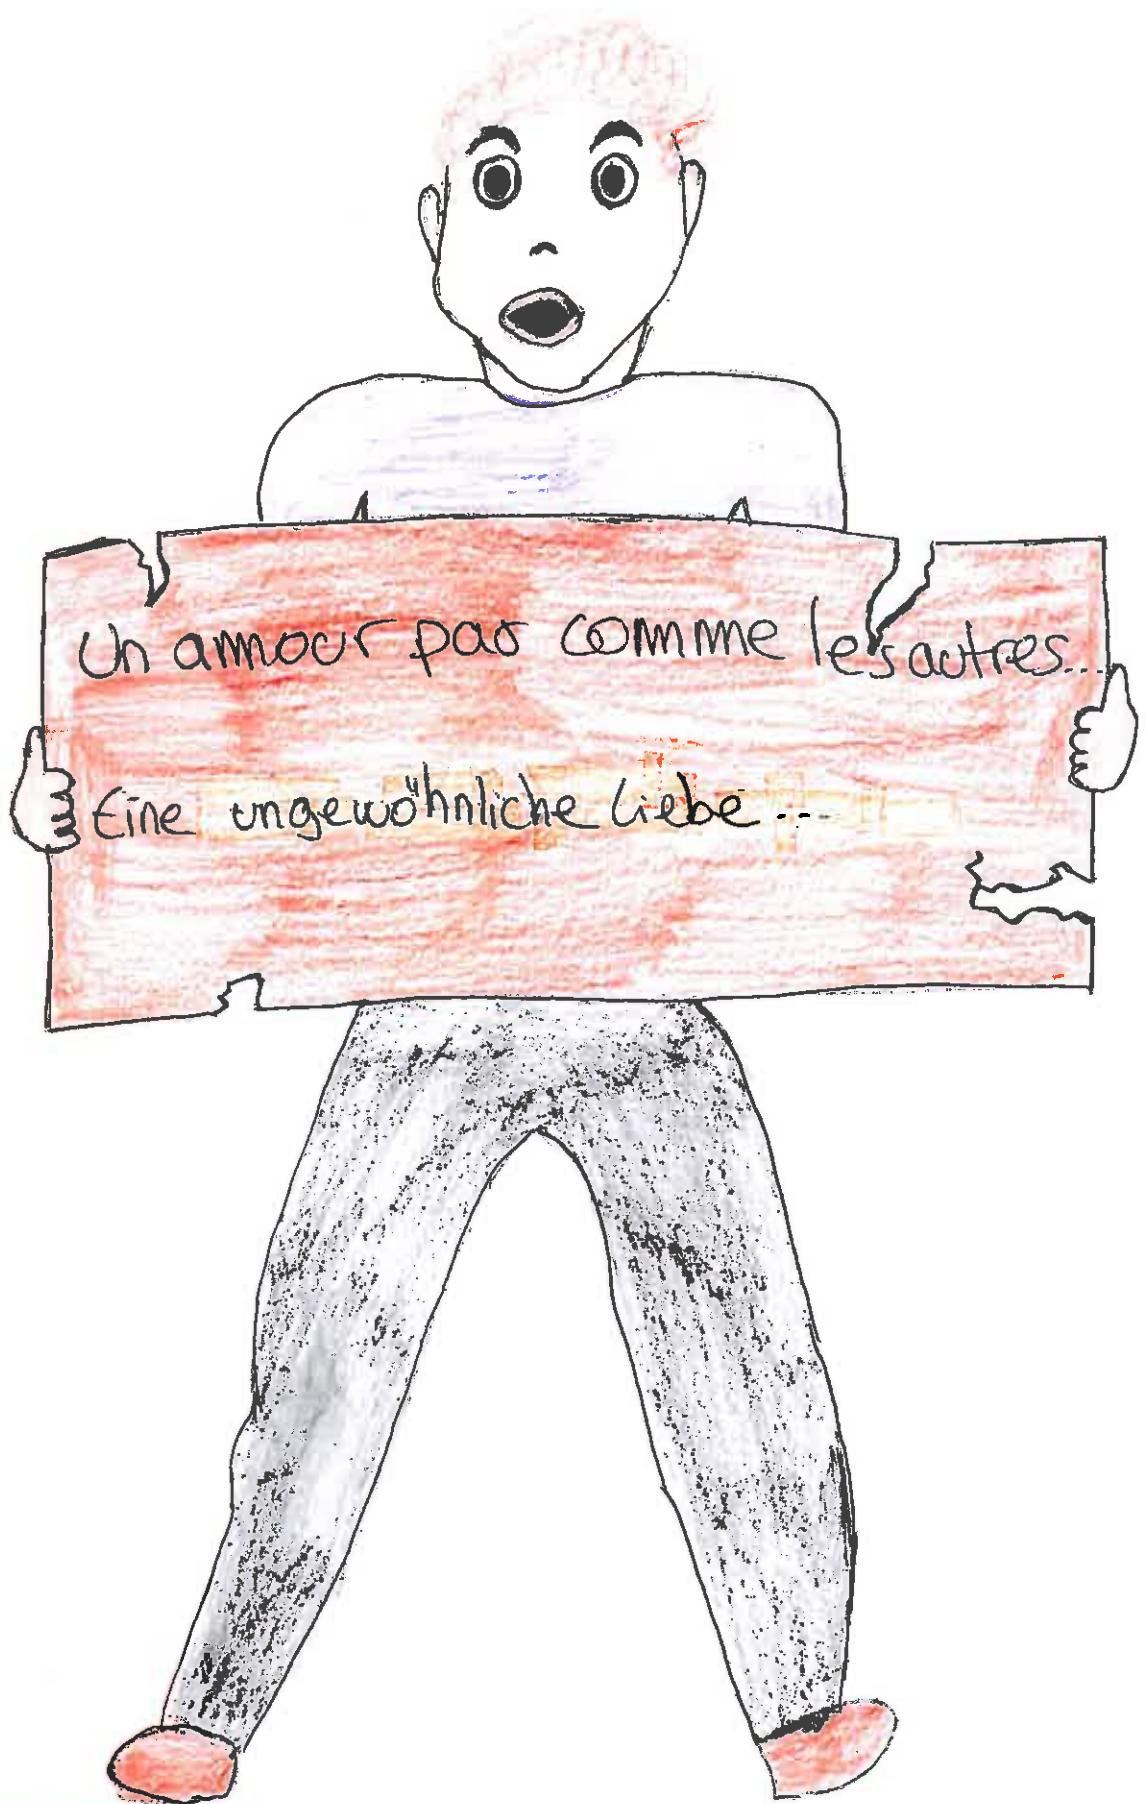 Un amour pas comme les autres...
Eine ungewöhnliche Liebe...